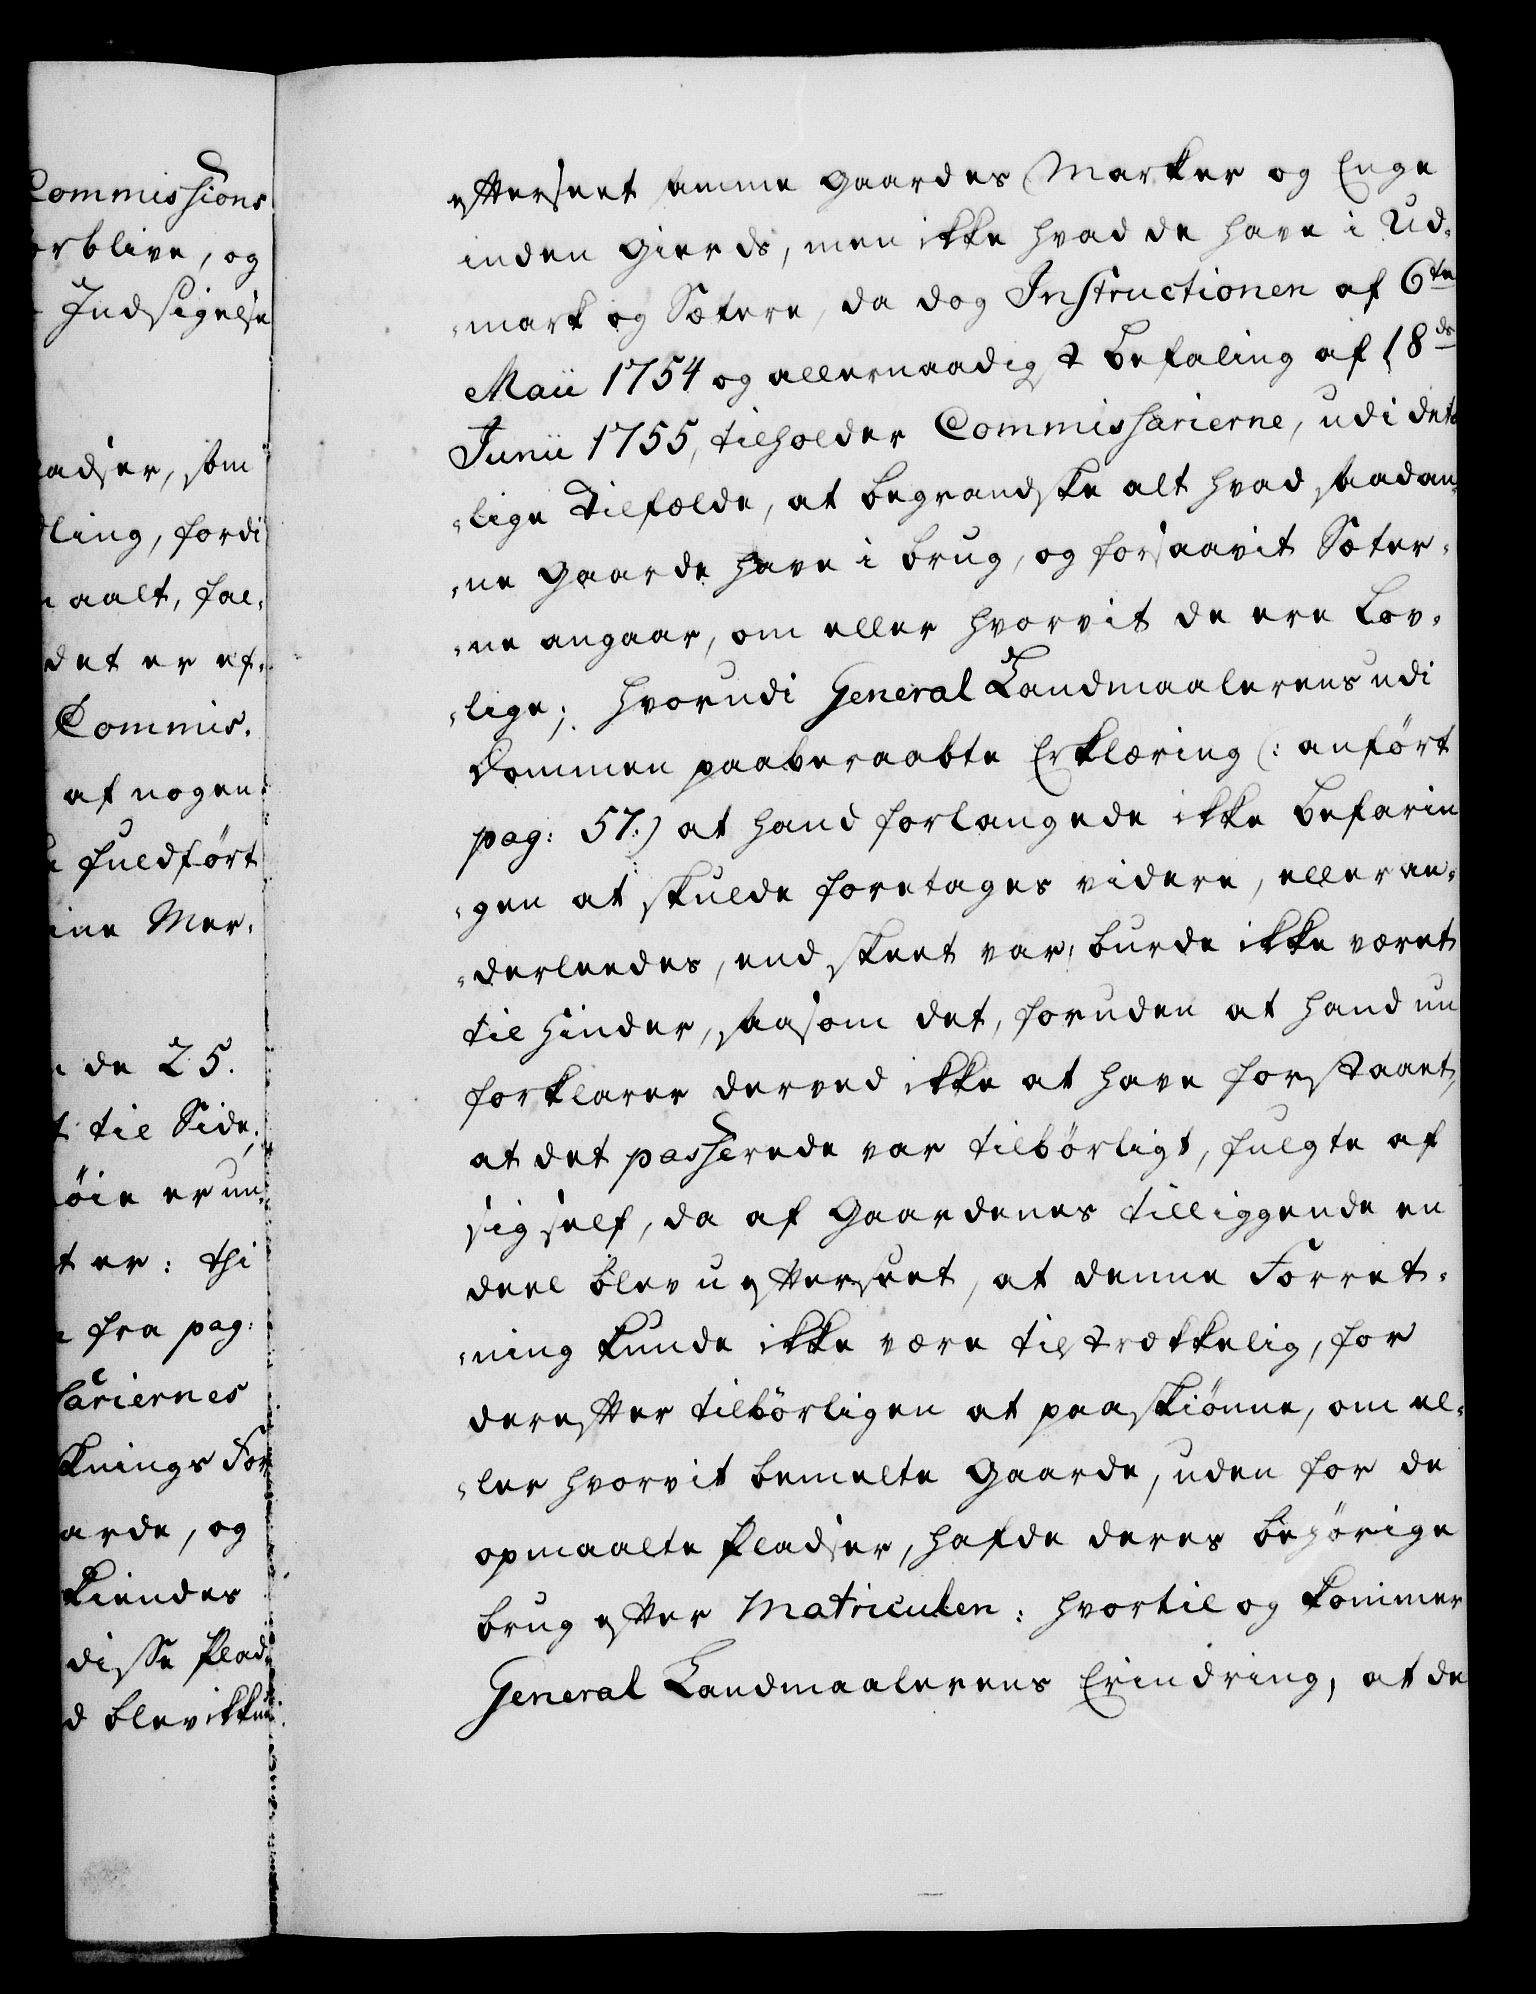 Commissions
orblive, og
Indsigelse
adser, som
ling, fordi
aalt, fal¬
det er ef¬
Commis¬
af nogen
fuldført
ine Mer¬
de 25.
til Side;
øie er un¬
t er: thi
fra pag:
sariernes
knings For
arde, og
kiendes
disse Plad¬
d blev ikkun
efterseet samme Gaardes Marker og Enge
inden Gierds, men ikke hvad de have i Ud¬
mark og Sætere, da dog Instructionen af 6te
Maii 1754 og allernaadigst Befaling af 18de
Junii 1755, tilholder Commissarierne, udi det
lige Tilfælde, at begrandske alt hvad saadan¬
ne Gaarde have i brug, og forsaavit Sæter¬
ne angaar, om eller hvorvit de ere Lov¬
lige; hvorudi General Landmaalerens udi
Dommen paaberaabte Erklæring (: anført
pag: 57:) at hand forlangede ikke Befarin
gen at skulde foretages videre, eller an¬
derleedes, end skeet var, burde ikke været
til Hinder, saasom det, foruden at hand nu
forklarer derved ikke at have forstaaet,
at det passerede var tilbørligt, fulgte af
sig self, da af Gaardenes tilliggende en
deel blev u efterseet, at denne Forret¬
ning kunde ikke være tilstrækkelig, for
derefter tilbørligen at paaskiønne, om el¬
ler hvorvit bemelte Gaarde, uden for de
opmaalte Pladser, hafde deres behørige
brug efter Matriculen: hvortil og kommer
General Landmaalerens Erindring, at de